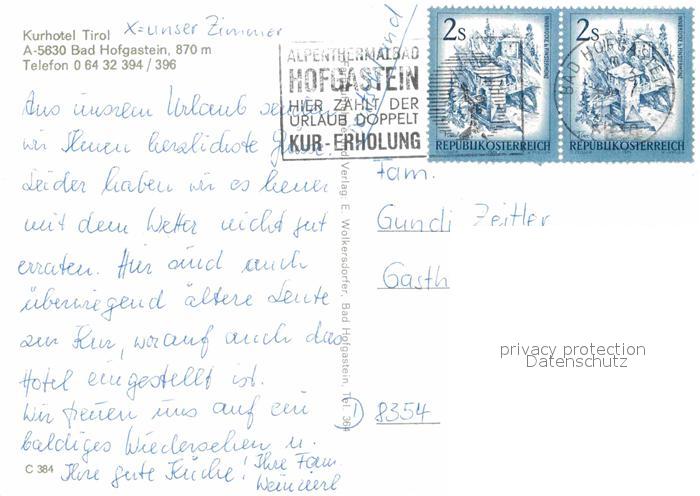 Kurhotel Tirol x=unser Zimmer
A-5630 Bad Hofgastein, 870 m
Telefon 0 64 32 394 / 396
Aus unserem Urlaub
wir Ihnen herzlichste Grüsse.
Leider haben wir es heuer
mit dem Wetter nicht gut
erraten. Hier sind auch
überwiegend ältere Leute
zur Kur, worauf auch das
Hotel eingestellt ist.
Wir freuen uns auf ein
baldiges Wiedersehen u.
Ihre gute Küche! Ihre Fam.
C 384
ALPENTHERMALBAD
HOFGASTEIN
HIER ZÄHLT DER
URLAUB DOPPELT
KUR-ERHOLUNG
2S
REPUBLIK ÖSTERREICH
2S
REPUBLIK ÖSTERREICH
BAD HOFGASTEIN
Verlag E. Wolkersdorfer, Bad Hofgastein, Tel. 364
Fam.
Gundi Zeitler
Gasth
8354
privacy protection
Datenschutz